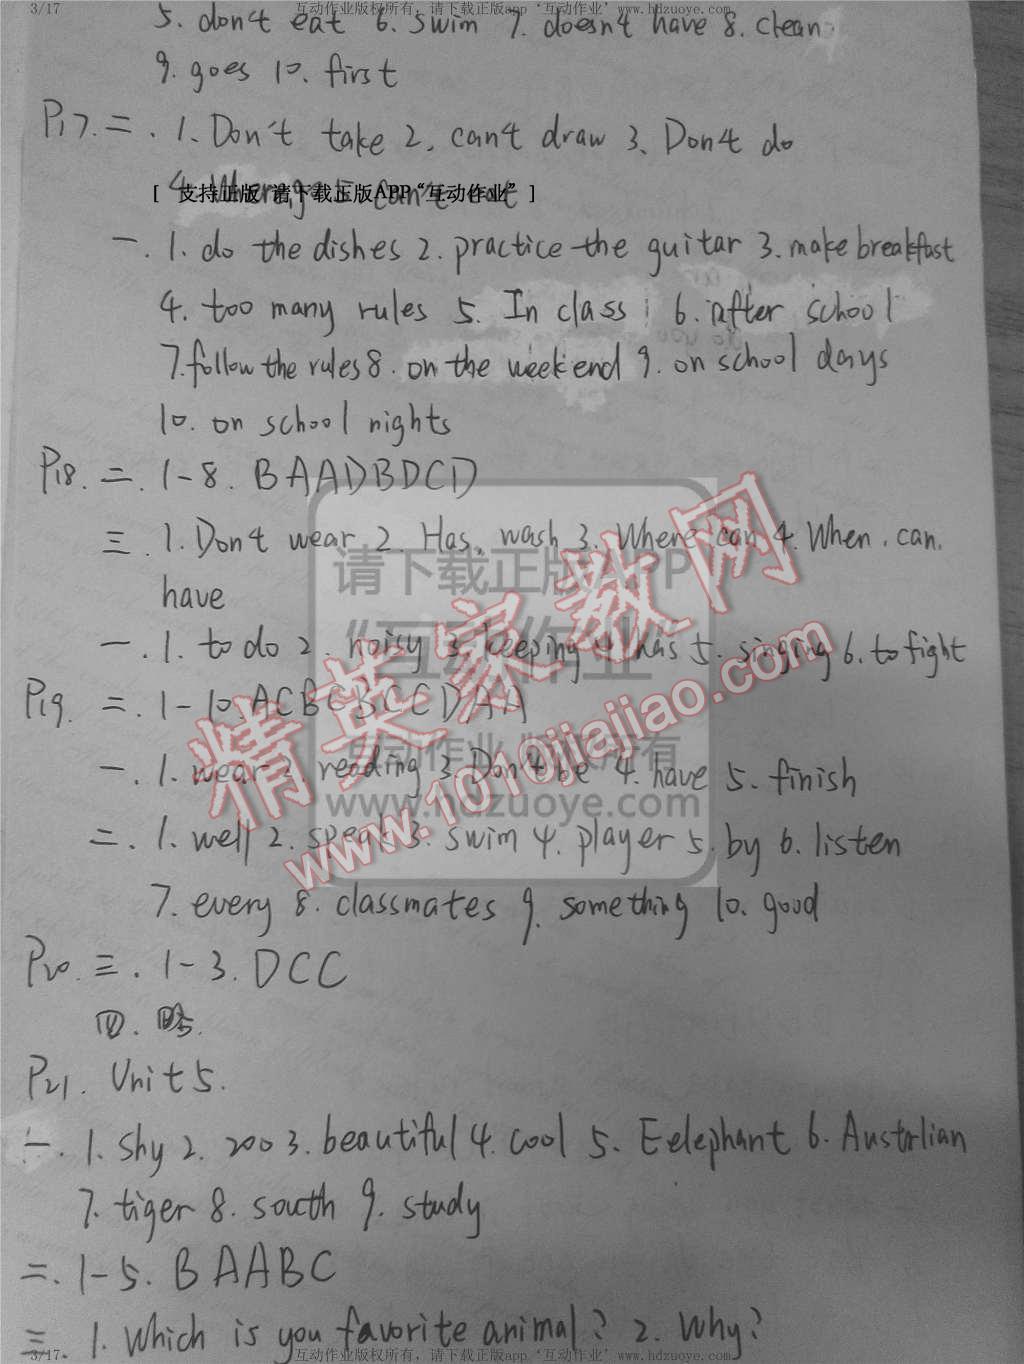 3/17 互动作业版权所有，请下载正版app‘互动作业’www.hdzuoye.com
5. don't eat 6. swim 7. doesn't have 8. clean
9. goes 10. first
P17. 二. 1. Don't take 2. can't draw 3. Don't do
4. can't eat
[ 支持正版 请下载正版APP“互动作业” ]
一. 1. do the dishes 2. practice the guitar 3. make breakfast
4. too many rules 5. In class 6. after school
7. follow the rules 8. on the weekend 9. on school days
10. on school nights
P18. 二. 1-8. BAADBDCD
三. 1. Don't wear 2. Has, wash 3. Where can 4. When, can,
have
一. 1. to do 2. noisy 3. keeping 4. has 5. singing 6. to fight
P19. 二. 1-10 ACBCBCCDAA
一. 1. wear 2. reading 3. Don't be 4. have 5. finish
二. 1. well 2. speak 3. swim 4. player 5. by 6. listen
7. every 8. classmates 9. something 10. good
P20. 三. 1-3. DCC
四. 略.
P21. Unit 5.
一. 1. shy 2. zoo 3. beautiful 4. cool 5. Eelephant 6. Austrlian
7. tiger 8. south 9. study
二. 1-5. BAABC
三. 1. Which is you favorite animal? 2. Why?
请下载正版APP
“互动作业”
互动作业 版权所有
www.hdzuoye.com
精英家教网
www.1010jiajiao.com
3/17. 互动作业版权所有，请下载正版app‘互动作业’www.hdzuoye.com